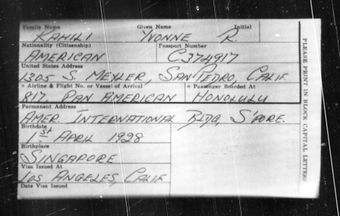 Family Name Given Name Initial
KAHILI YVONNE R
Nationality (Citizenship) Passport Number
AMERICAN C374917
United States Address
1305 S. MEYLER, SAN PEDRO, CALIF.
Airline & Flight No. or Vessel of Arrival Passenger Boarded At
817 PAN AMERICAN HONOLULU
Permanent Address
AMER INTERNATIONAL BLDG, S'PORE.
Birthdate
1st APRIL 1928
Birthplace
SINGAPORE
Visa Issued At
LOS ANGELES, CALIF
Date Visa Issued
PLEASE PRINT IN BLOCK CAPITAL LETTERS